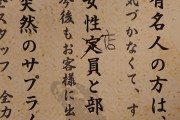 有名人の方は、
気づかなくて、す
女性定員と部
店
今後もお客様に出
突然のサプライ
全スタッフ、全力